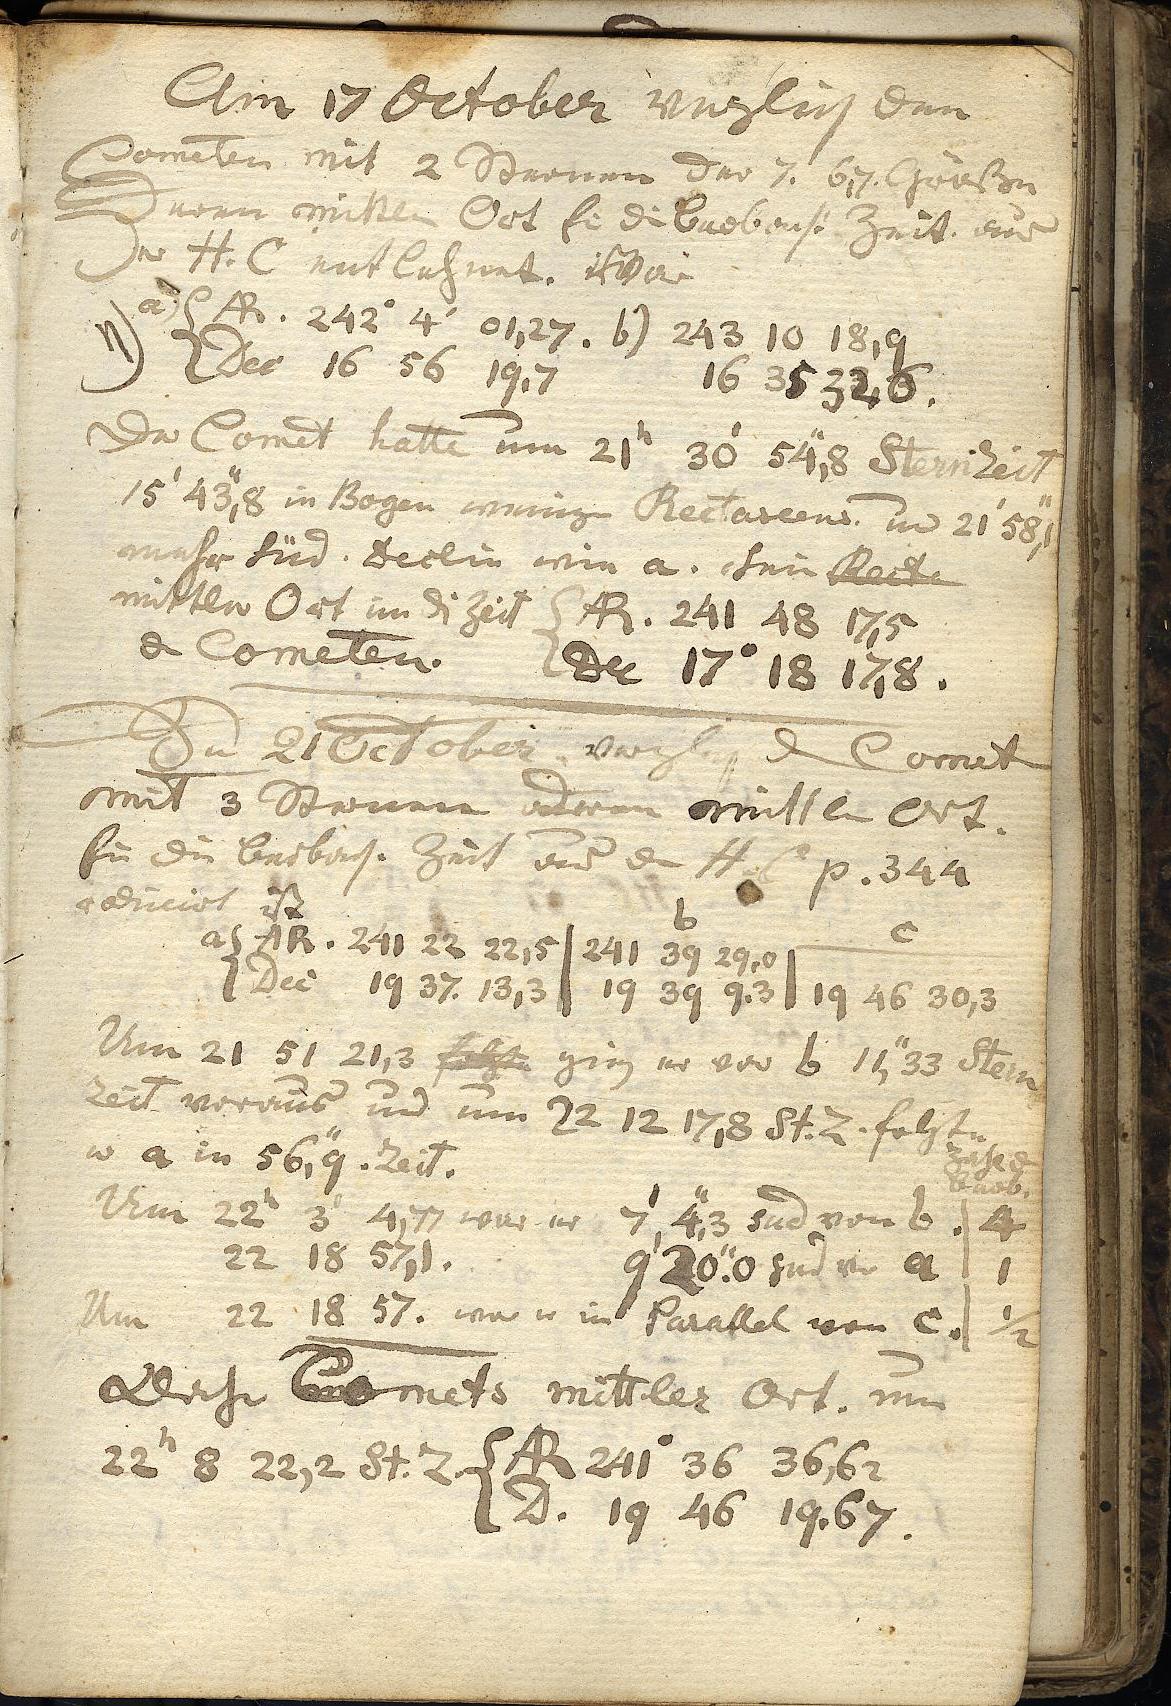 Am 17 October verglich den
Cometen mit 2 Sternen der 7. 6,7. Größen
Deren mittlen Ort für die Beobach. Zeit aus
der H. C entlehnet.
n) a) { AR. 242° 4′ 01,27. b) 243 10 18,9
Dec 16 56 19,7 16 35 32,6.
Der Comet hatte um 21h 30′ 54″,8 Sternzeit
15′ 43″,8 in Bogen weniger Rectascens. und 21′ 58″,1
mehr süd. Declin wie a. sein Recta
mittler Ort um di Zeit { AR. 241 48 17,5
d Cometen. Dec 17° 18 17,8.
Den 21 October verglich d Comet
mit 3 Sternen deren mittlen Ort.
für die beobach. Zeit aus der H. C p. 344
reducirt ist
b c
a { AR. 241 22 22,5 | 241 39 29,0
Dec 19 37. 13,3 | 19 39 9.3 | 19 46 30,3
Um 21 51 21,3 folgt ging er vor b 11,″33 Stern
Zeit voraus und um 22 12 17,8 St. Z. folgte
er a in 56,″9. Zeit.
Zahl d
Beob.
Um 22h 3′ 4,77 war er 7′, 4″,3 süd von b. | 4
22 18 57,1. 9′ 20″.0 süd von a | 1
Um 22 18 57. war er in Parallel von c. | 1/2
Comets mittler Ort. um
22h 8 22,2 St. Z. { AR 241° 36 36,62
D. 19 46 19.67.